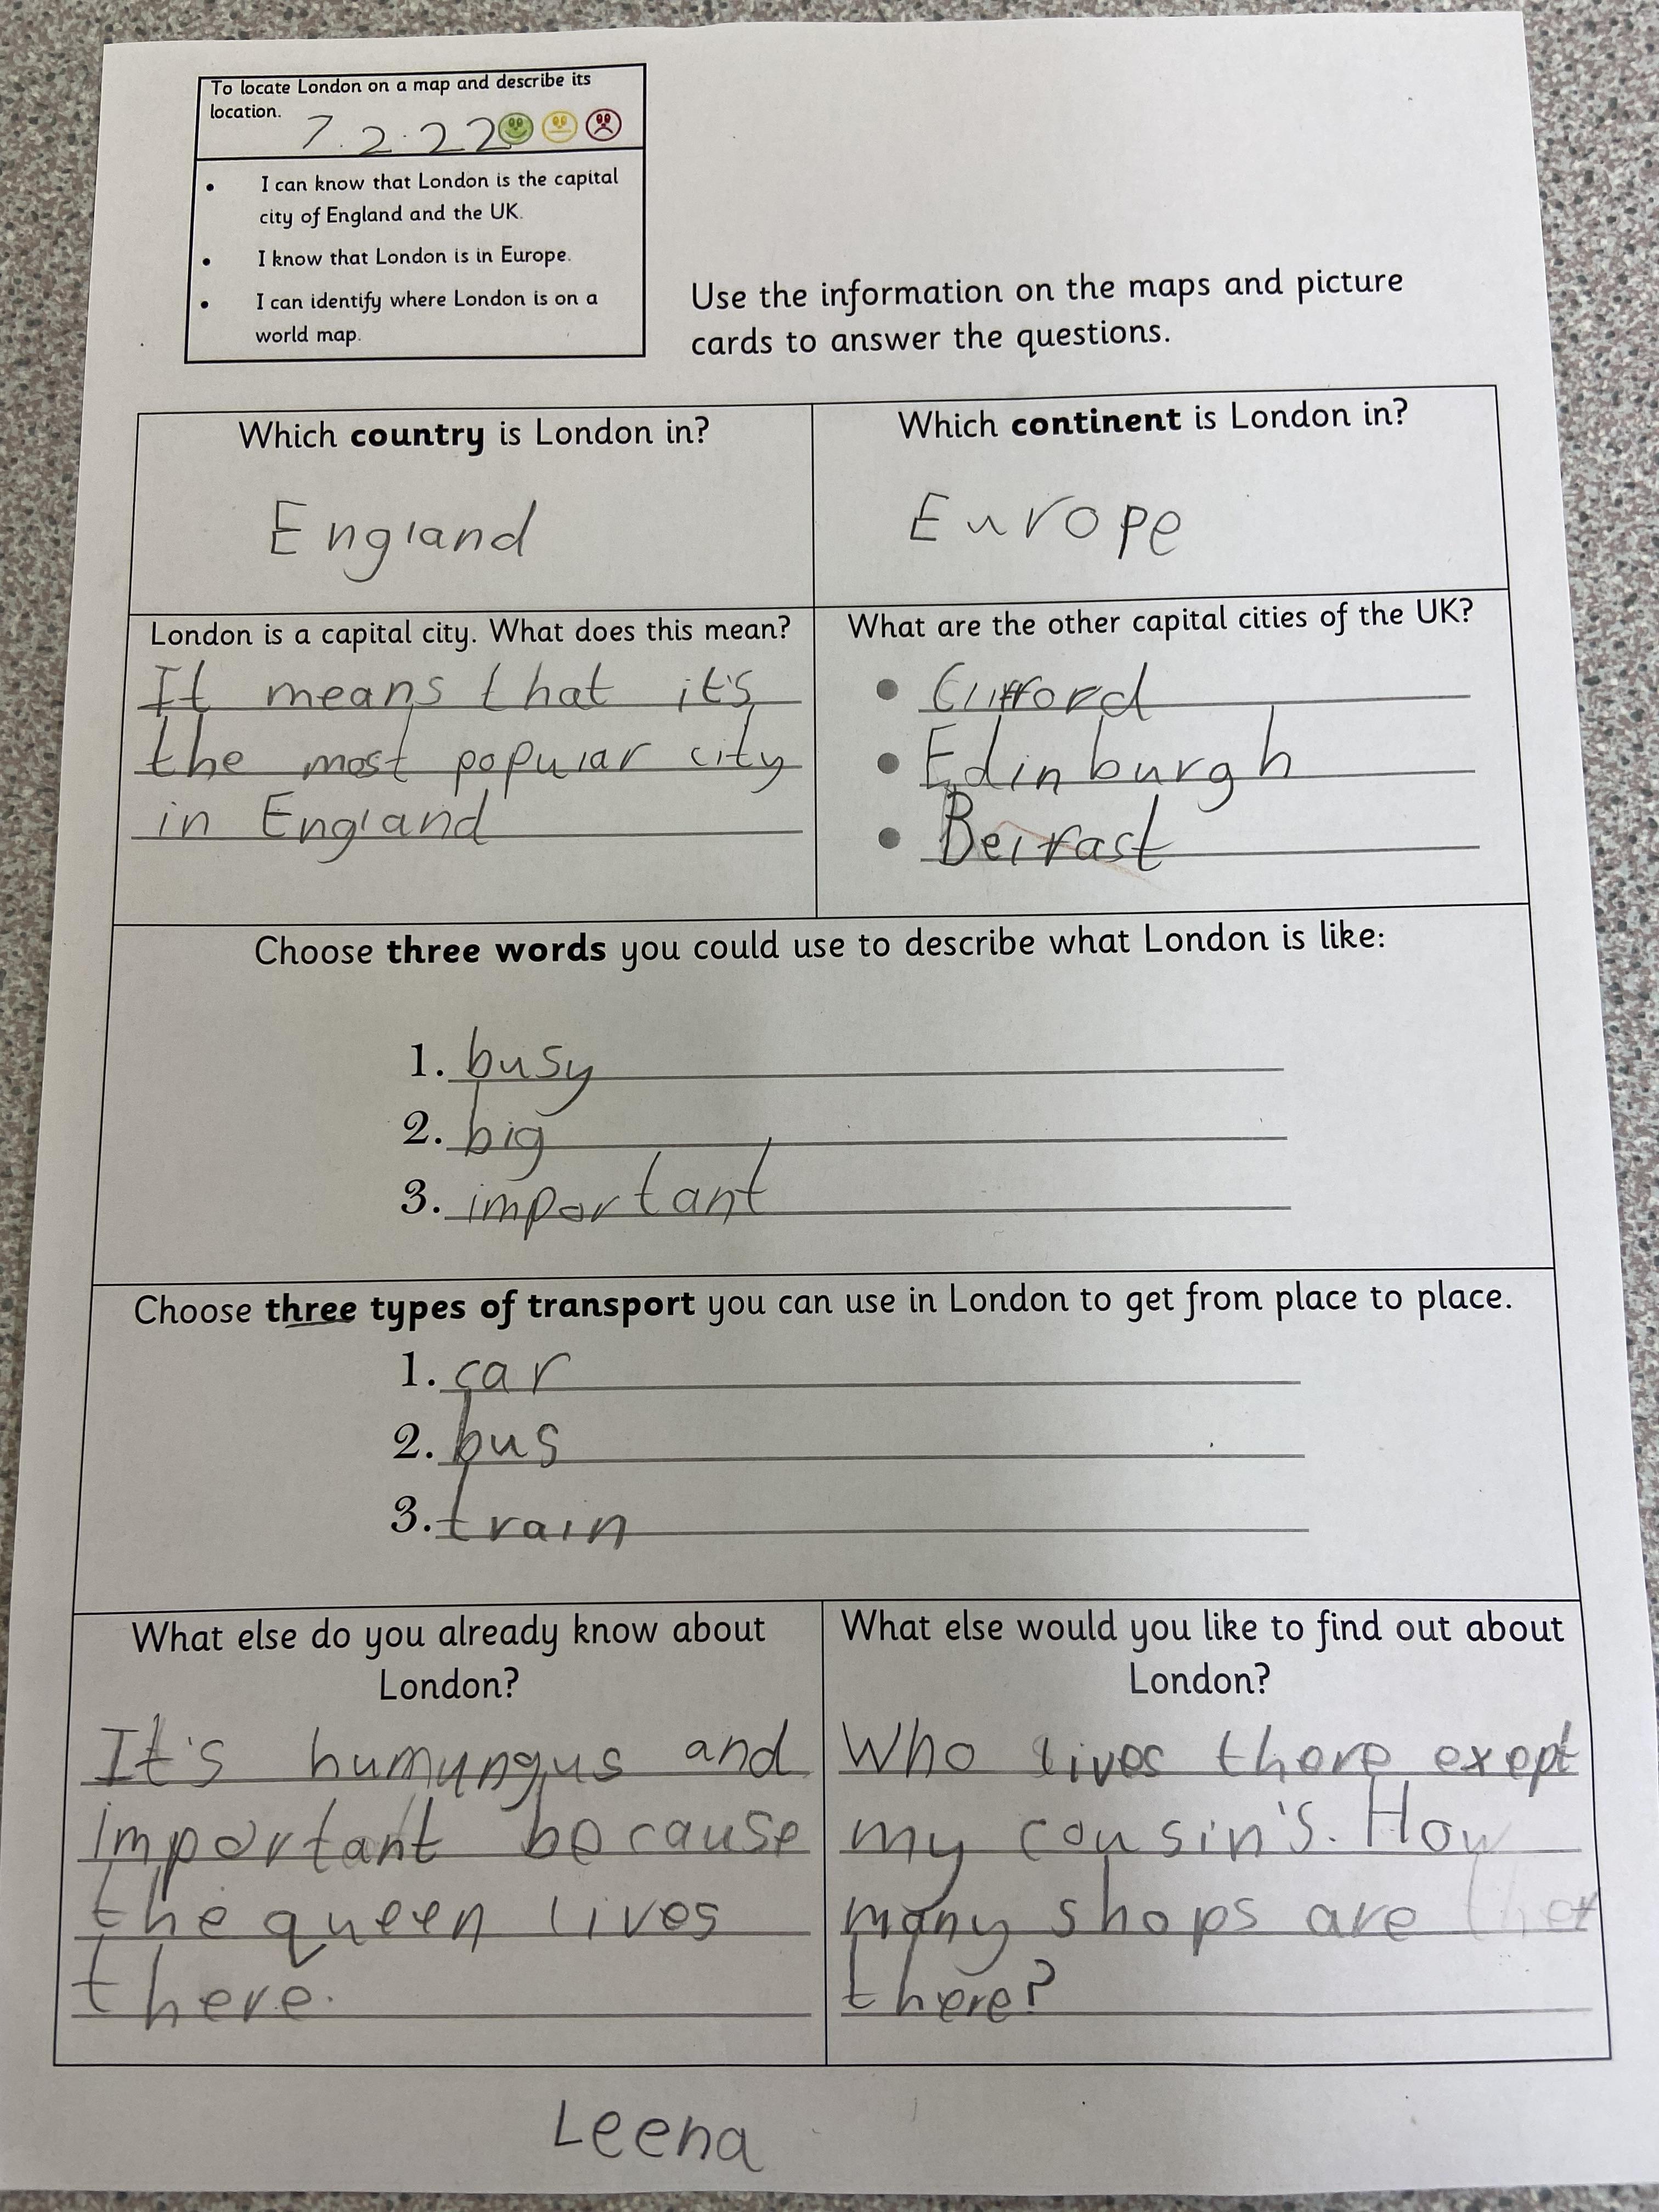 To locate London on a map and describe its
location.
7.2.22
• I can know that London is the capital
city of England and the UK.
• I know that London is in Europe.
• I can identify where London is on a
world map.
Use the information on the maps and picture
cards to answer the questions.
Which country is London in?
England
Which continent is London in?
Europe
London is a capital city. What does this mean?
It means that it's
the most popular city
in England
What are the other capital cities of the UK?
• Clifford
• Edinburgh
• Belfast
Choose three words you could use to describe what London is like:
1. busy
2. big
3. important
Choose three types of transport you can use in London to get from place to place.
1. car
2. bus
3. train
What else do you already know about
London?
It's humungus and
important because
the queen lives
there.
What else would you like to find out about
London?
Who lives there exept
my cousin's. How
many shops are
there?
Leena